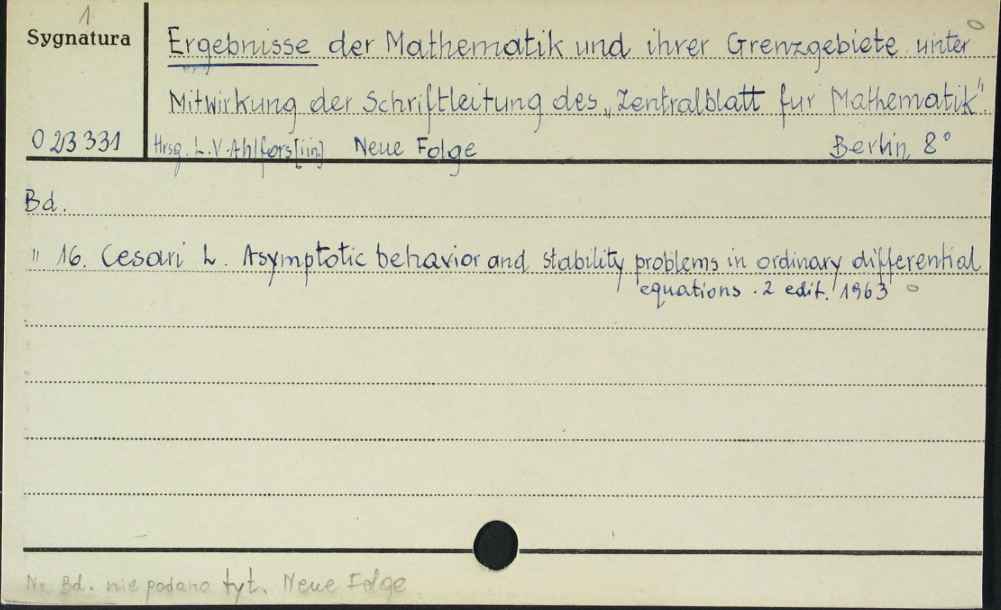 1
Sygnatura
Ergebnisse der Mathematik und ihrer Grenzgebiete unter
Mitwirkung der Schriftleitung des „Zentralblatt fur Mathematik".
023331 Hrsg. L.V. Ahlfors [iin] Neue Folge Berlin 8°
Bd.
" 16. Cesari L. Asymptotic behavior and stability problems in ordinary differential
equations . 2 edit. 1963
Nr Bd. nie podano tyt. Neue Folge